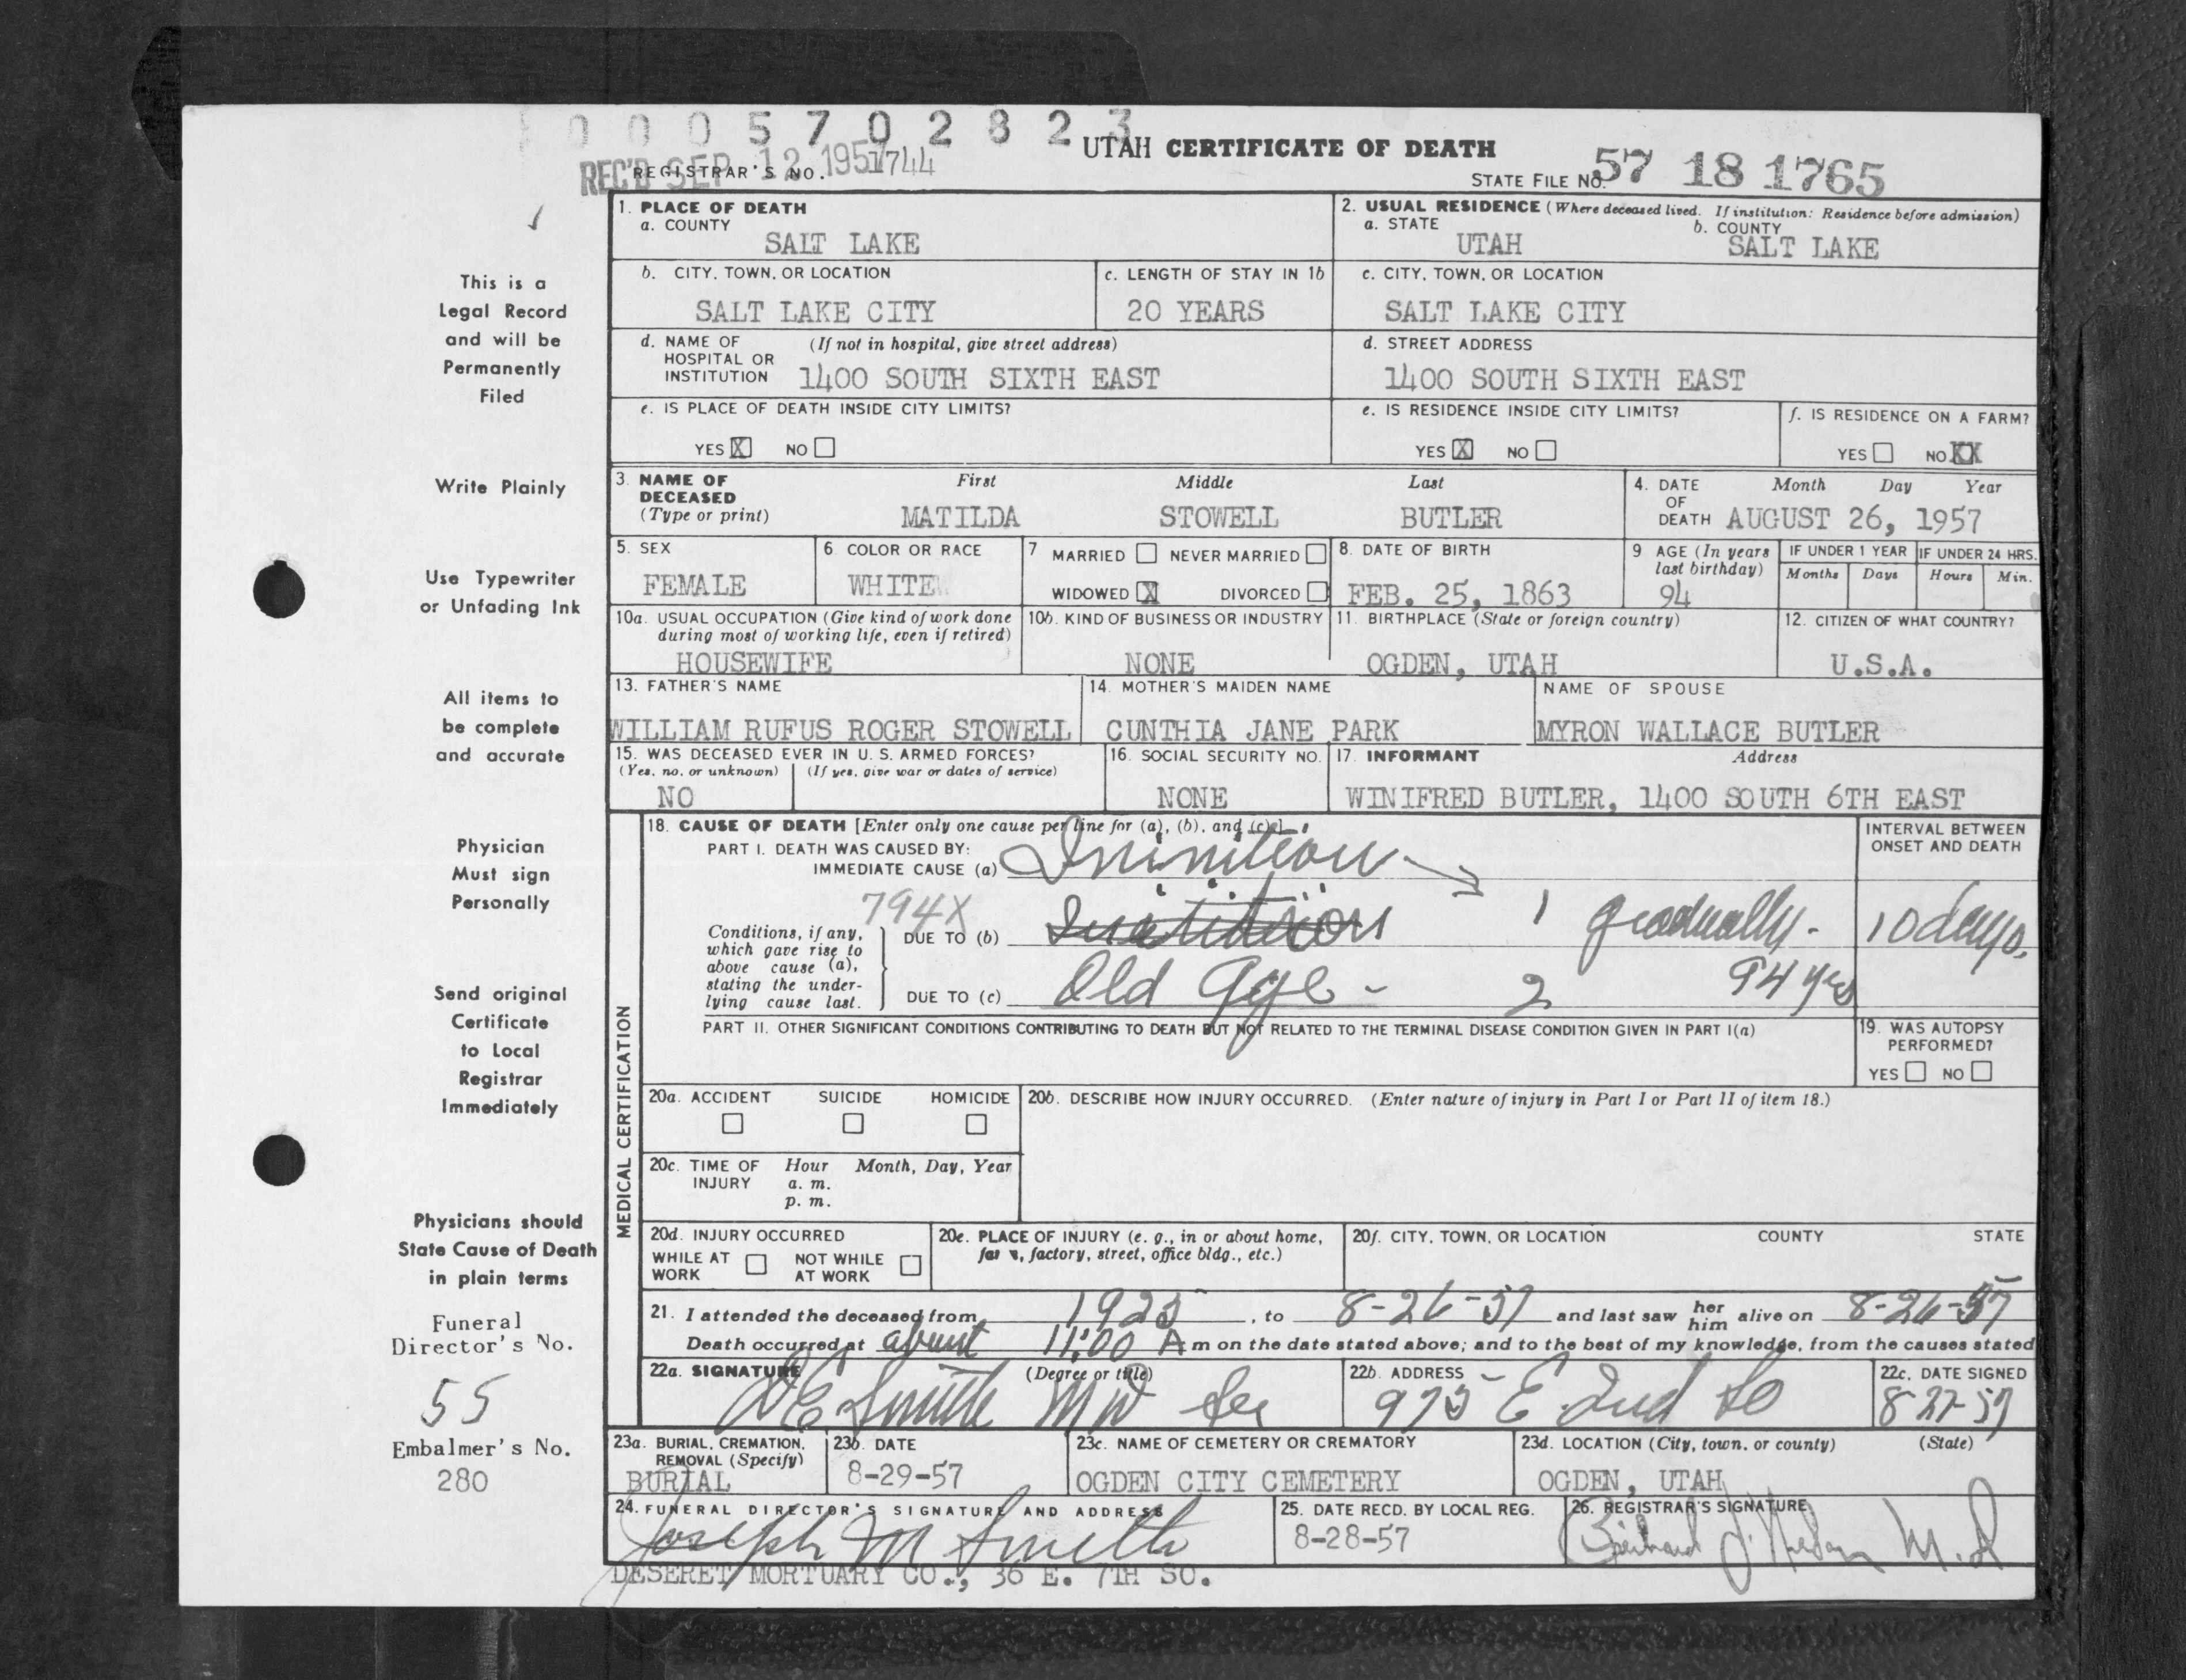 0005702823
UTAH CERTIFICATE OF DEATH
REC'D SEP 12 1957
REGISTRAR'S NO. 1744
STATE FILE NO. 57 18 1765
This is a
Legal Record
and will be
Permanently
Filed
Write Plainly
Use Typewriter
or Unfading Ink
All items to
be complete
and accurate
Physician
Must sign
Personally
Send original
Certificate
to Local
Registrar
Immediately
Physicians should
State Cause of Death
in plain terms
Funeral
Director's No.
55
Embalmer's No.
280
1. PLACE OF DEATH
a. COUNTY
SALT LAKE
2. USUAL RESIDENCE (Where deceased lived. If institution: Residence before admission)
a. STATE
UTAH
b. COUNTY
SALT LAKE
b. CITY, TOWN, OR LOCATION
SALT LAKE CITY
c. LENGTH OF STAY IN 1b
20 YEARS
c. CITY, TOWN, OR LOCATION
SALT LAKE CITY
d. NAME OF (If not in hospital, give street address)
HOSPITAL OR
INSTITUTION 1400 SOUTH SIXTH EAST
d. STREET ADDRESS
1400 SOUTH SIXTH EAST
e. IS PLACE OF DEATH INSIDE CITY LIMITS?
YES X NO
e. IS RESIDENCE INSIDE CITY LIMITS?
YES X NO
f. IS RESIDENCE ON A FARM?
YES NO XX
3. NAME OF First Middle Last
DECEASED
(Type or print) MATILDA STOWELL BUTLER
4. DATE Month Day Year
OF
DEATH AUGUST 26, 1957
5. SEX
FEMALE
6. COLOR OR RACE
WHITE
7 MARRIED NEVER MARRIED
WIDOWED X DIVORCED
8. DATE OF BIRTH
FEB. 25, 1863
9 AGE (In years
last birthday)
94
IF UNDER 1 YEAR
Months Days
IF UNDER 24 HRS.
Hours Min.
10a. USUAL OCCUPATION (Give kind of work done
during most of working life, even if retired)
HOUSEWIFE
10b. KIND OF BUSINESS OR INDUSTRY
NONE
11. BIRTHPLACE (State or foreign country)
OGDEN, UTAH
12. CITIZEN OF WHAT COUNTRY?
U.S.A.
13. FATHER'S NAME
WILLIAM RUFUS ROGER STOWELL
14. MOTHER'S MAIDEN NAME
CUNTHIA JANE PARK
NAME OF SPOUSE
MYRON WALLACE BUTLER
15. WAS DECEASED EVER IN U. S. ARMED FORCES?
(Yes, no, or unknown) (If yes, give war or dates of service)
NO
16. SOCIAL SECURITY NO.
NONE
17. INFORMANT Address
WINIFRED BUTLER, 1400 SOUTH 6TH EAST
MEDICAL CERTIFICATION
18. CAUSE OF DEATH [Enter only one cause per line for (a), (b), and (c).]
PART I. DEATH WAS CAUSED BY:
IMMEDIATE CAUSE (a) Ininition
INTERVAL BETWEEN
ONSET AND DEATH
794X
Conditions, if any,
which gave rise to
above cause (a),
stating the under-
lying cause last.
DUE TO (b) 1 gradually - 10 days.
DUE TO (c) Old Age - 2 94 yrs
PART II. OTHER SIGNIFICANT CONDITIONS CONTRIBUTING TO DEATH BUT NOT RELATED TO THE TERMINAL DISEASE CONDITION GIVEN IN PART I(a)
19. WAS AUTOPSY
PERFORMED?
YES NO
20a. ACCIDENT SUICIDE HOMICIDE
20b. DESCRIBE HOW INJURY OCCURRED. (Enter nature of injury in Part I or Part II of item 18.)
20c. TIME OF Hour Month, Day, Year
INJURY a. m.
p. m.
20d. INJURY OCCURRED
WHILE AT WORK
NOT WHILE AT WORK
20e. PLACE OF INJURY (e. g., in or about home,
farm, factory, street, office bldg., etc.)
20f. CITY, TOWN, OR LOCATION COUNTY STATE
21. I attended the deceased from 1925, to 8-26-57 and last saw her him alive on 8-26-57
Death occurred at about 11:00 A m on the date stated above; and to the best of my knowledge, from the causes stated
22a. SIGNATURE (Degree or title)
D E Smith MD
22b. ADDRESS
975 E. 2nd So
22c. DATE SIGNED
8-27-57
23a. BURIAL, CREMATION,
REMOVAL (Specify)
BURIAL
23b. DATE
8-29-57
23c. NAME OF CEMETERY OR CREMATORY
OGDEN CITY CEMETERY
23d. LOCATION (City, town, or county) (State)
OGDEN, UTAH
24. FUNERAL DIRECTOR'S SIGNATURE AND ADDRESS
Joseph M Smith
DESERET MORTUARY CO., 36 E. 7TH SO.
25. DATE RECD. BY LOCAL REG.
8-28-57
26. REGISTRAR'S SIGNATURE
M.D